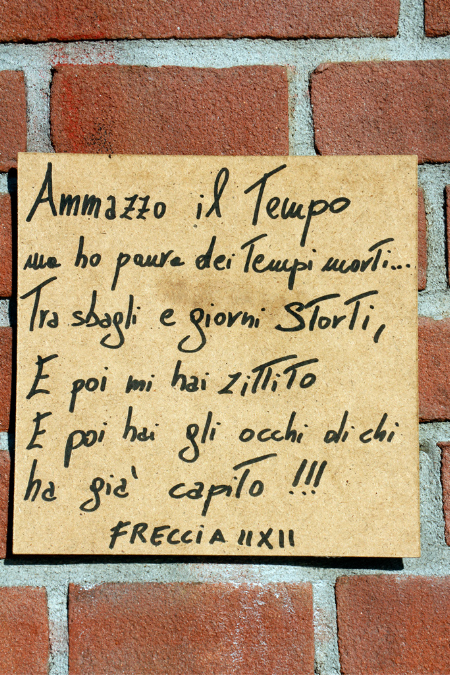 Ammazzo il Tempo
ma ho paura dei Tempi morti...
Tra sbagli e giorni STorTi,
E poi mi hai ziTTiTo
E poi hai gli occhi di chi
ha già capiTo !!!
FRECCIA IIXII